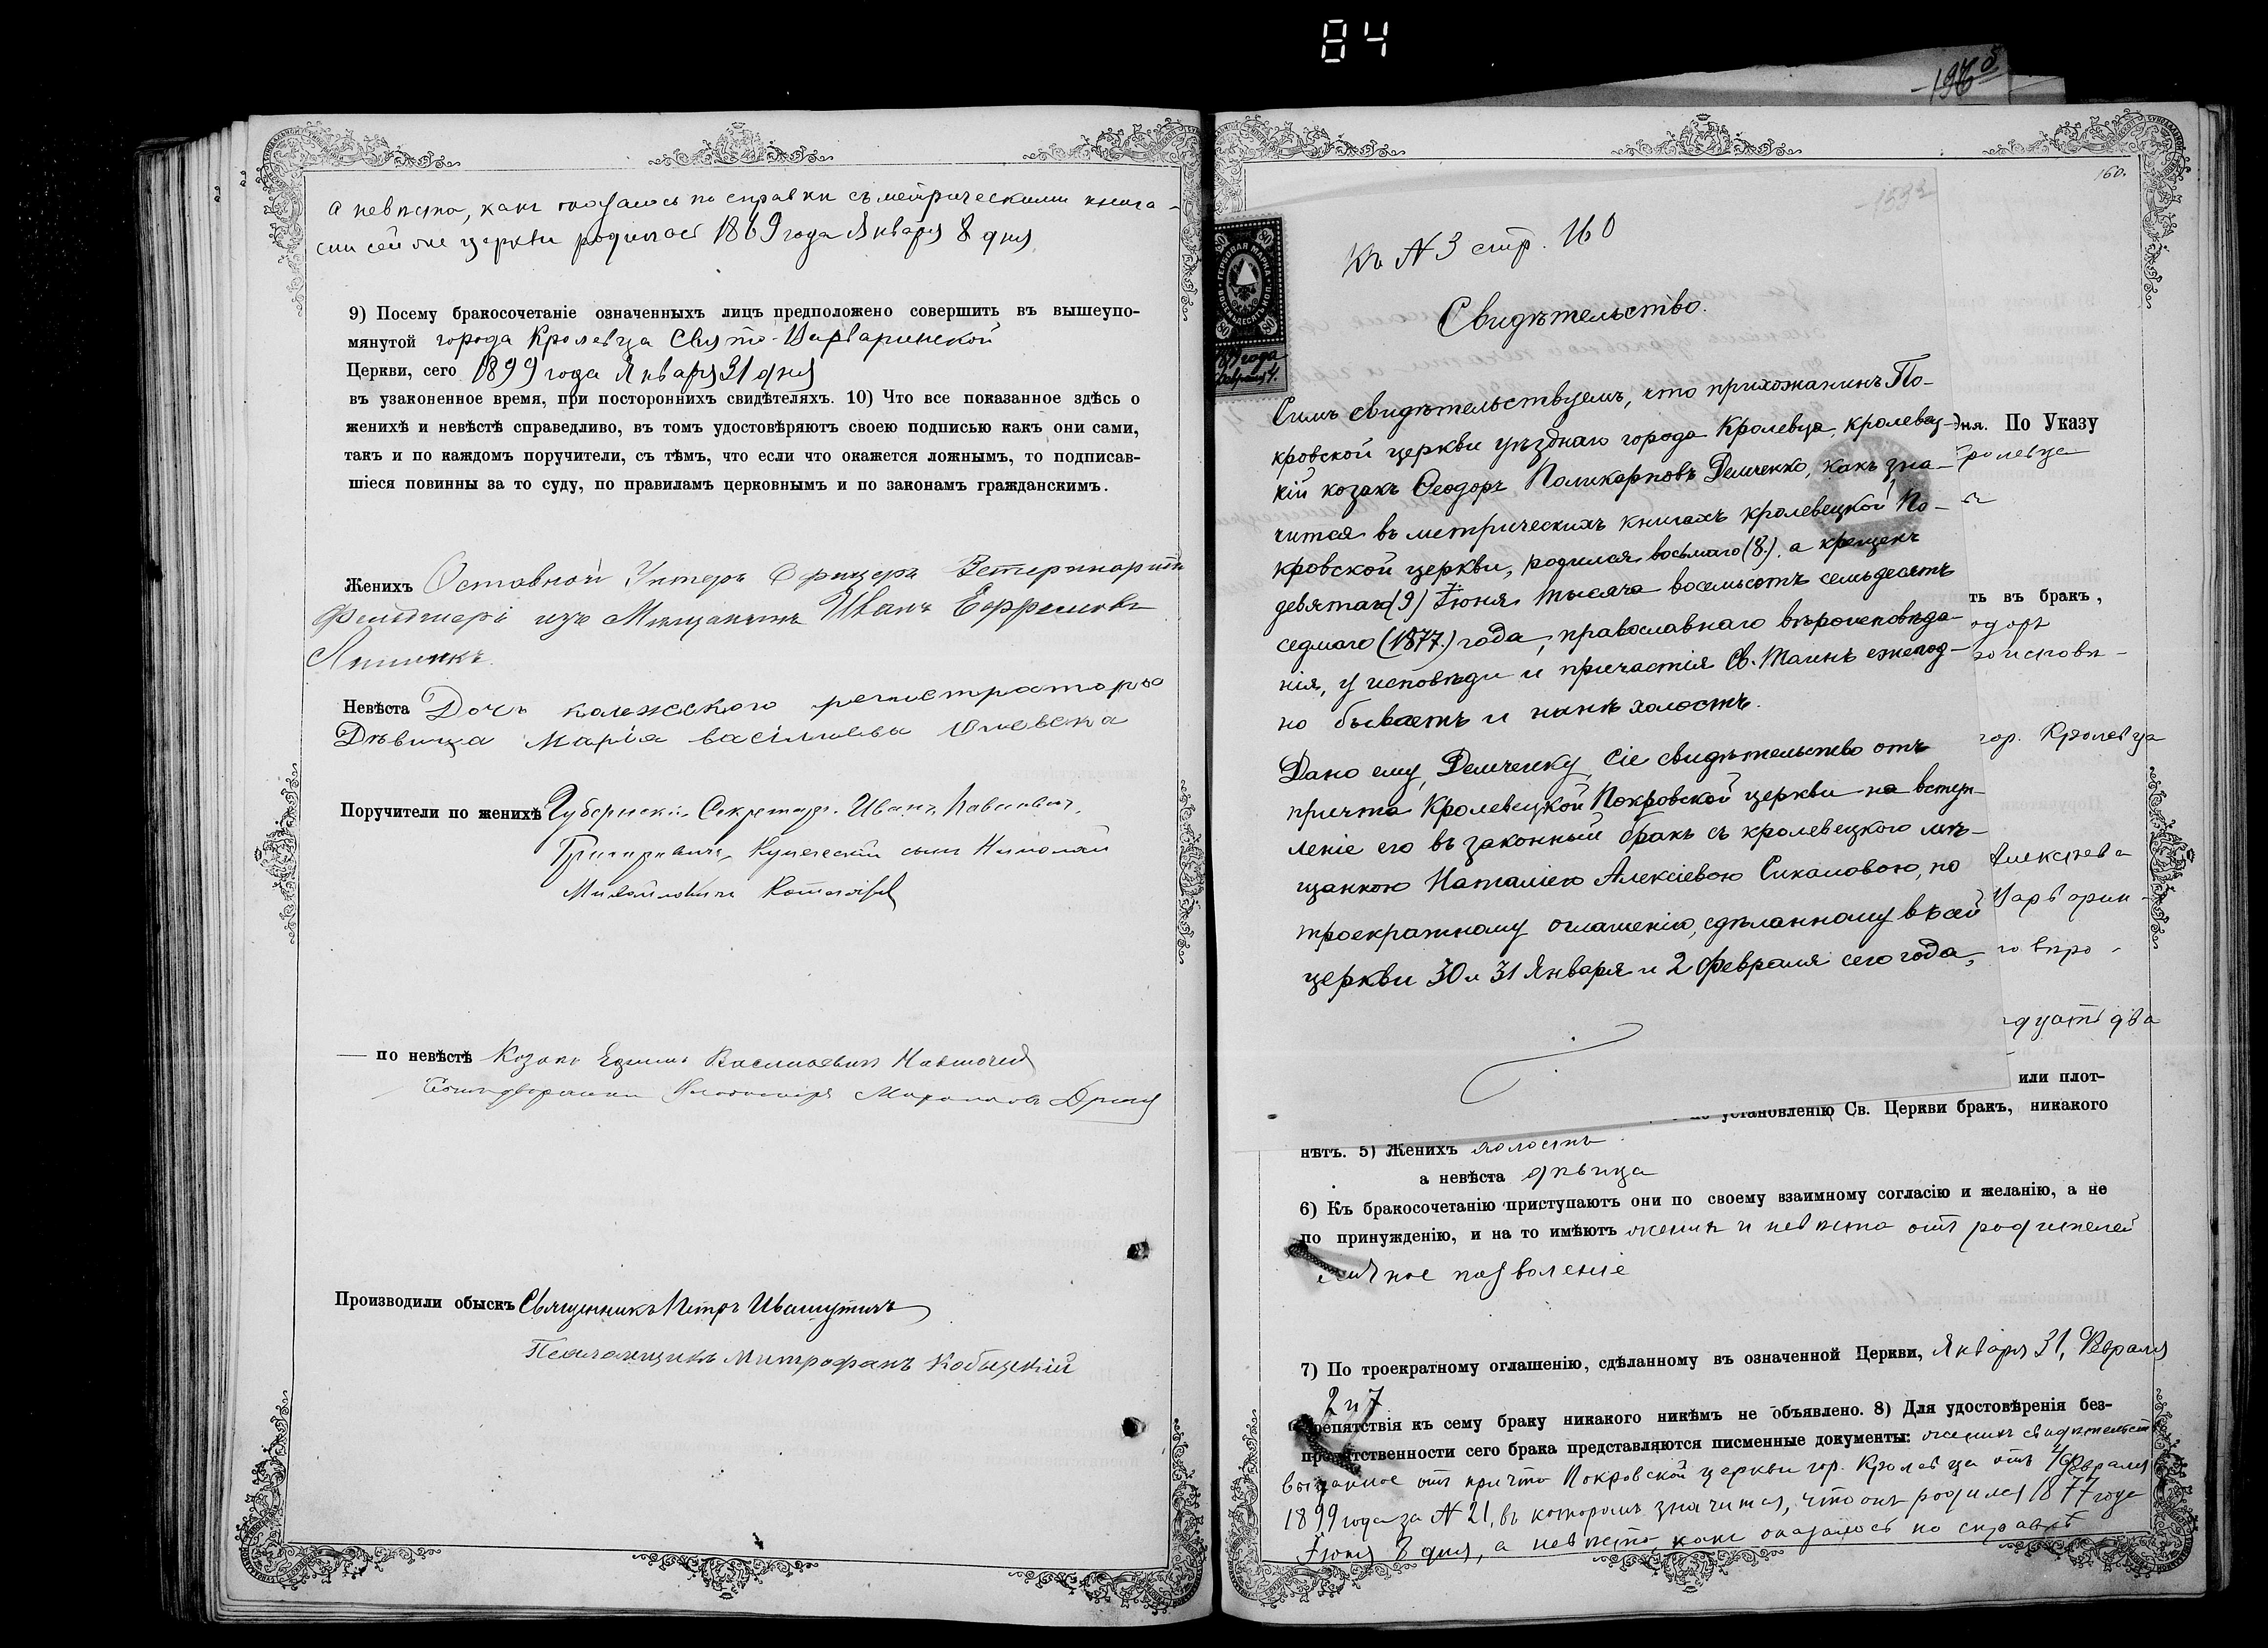 84
1960
а невѣста, какъ оказалось по справки съ метрическими книга-
ми сей же церкви родилась 1869 года Января 8 дня.
9) Посему бракосочетаніе означенныхъ лицъ предположено совершить въ вышеупо-
мянутой города Кролевца Свято-Варваринской
Церкви, сего 1899 года Января 31 дня
въ узаконенное время, при постороннихъ свидѣтеляхъ. 10) Что все показанное здѣсь о
женихѣ и невѣстѣ справедливо, въ томъ удостовѣряютъ своею подписью какъ они сами,
такъ и по каждомъ поручители, съ тѣмъ, что если что окажется ложнымъ, то подписав-
шіеся повинны за то суду, по правиламъ церковнымъ и по законамъ гражданскимъ.
Женихъ Оставной Унтеръ Офицеръ Ветеринарный
Фельдшеръ изъ Мищанинъ Иванъ Ефремовъ
Невѣста Дочь колежского регистратора
Дѣвица Марія Васіліева
Поручители по женихѣ Губернскій Секретарь Иванъ Павловичъ
Григоровичъ, Купеческій сынъ Николай
Михайловичъ
по невѣстѣ Козакъ Ефимъ Васильевичъ
Производили обыскъ Священникъ Петръ Ивашутичъ
Псаломщикъ Митрофанъ Кобыцкій
160.
1592
Къ № 3 стр. 160
Свидѣтельство.
80 80
ГЕРБОВАЯ МАРКА
ВОСЕМЬДЕСЯТЪ КОП.
80 80
1899 года
Февраля 4.
Симъ свидѣтельствуемъ, что прихожанинъ По-
кровской церкви уѣзднаго города Кролевца, кролевец-
кій козакъ Ѳеодоръ Поликарповъ Демченко, какъ зна-
чится въ метрическихъ книгахъ кролевецкой По-
кровской церкви, родился восьмаго (8.), а крещенъ
девятаго (9) Іюня тысяча восемьсотъ семьдесятъ
седмаго (1877.) года, православнаго вѣроисповѣда-
нія, у исповѣди и причастія Св. Таинъ ежегод-
но бываетъ и нынѣ холостъ.
Дано ему, Демченку, сіе свидѣтельство отъ
причта Кролевецкой Покровской церкви на вступ-
леніе его въ законный бракъ съ кролевецкого мѣ-
щанкою Наталіею Алексіевою Сикаловою, по
троекратному оглашенію, сдѣланному въ сей
церкви 30 и 31 Января и 2 Февраля сего года,
дня. По Указу
ролевца
ть въ бракъ,
одоръ
оисповѣ-
гор. Кролевца
Алексѣева
Варварин-
го вѣро-
дцать два
или плот-
установленію Св. Церкви бракъ, никакого
нѣтъ. 5) Женихъ холостъ
а невѣста дѣвица
6) Къ бракосочетанію приступаютъ они по своему взаимному согласію и желанію, а не
по принужденію, и на то имѣютъ женихъ и невѣста отъ родителей
личное позволеніе
7) По троекратному оглашенію, сдѣланному въ означенной Церкви, Января 31, Февраля
2 и 7
препятствія къ сему браку никакого никѣмъ не объявлено. 8) Для удостовѣренія без-
препятственности сего брака представляются писменные документы: женихъ свидѣтельст
выданное отъ причта Покровской церкви гор. Кролевца отъ 4 Февраля
1899 года за № 21, въ которомъ значится, что онъ родился 1877 года
Іюня 8 дня, а невѣста какъ оказалось по справкѣ